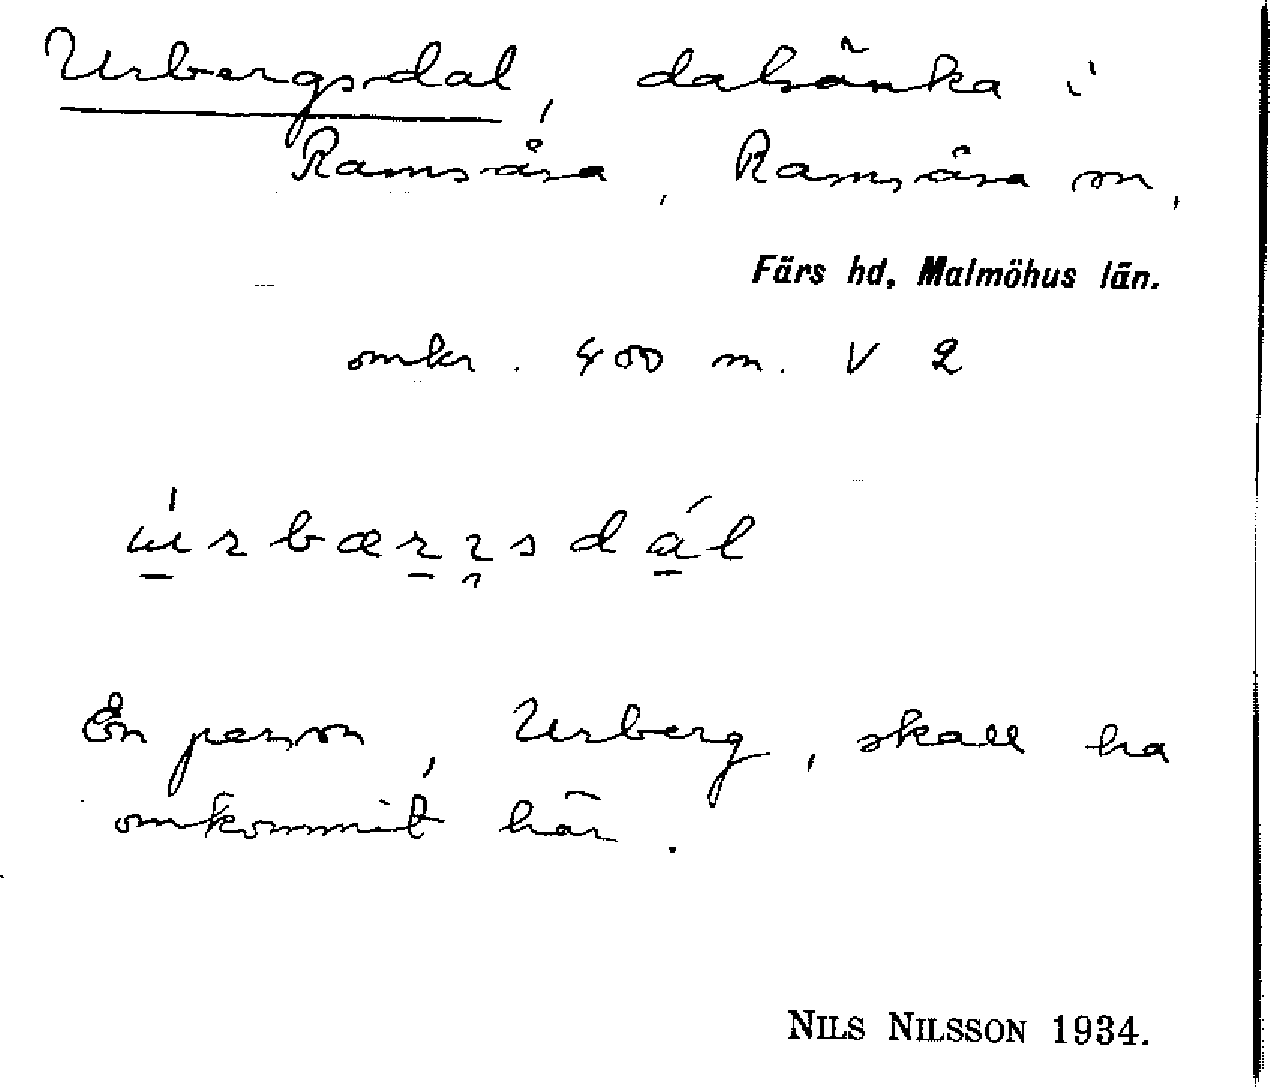 Urbergsdal, dalsänka i
Ramsåsa, Ramsåsa sn,
Färs hd, Malmöhus län.
omkr. 400 m. V 2
En person, Urberg, skall ha
omkommit här.
NILS NILSSON 1934.